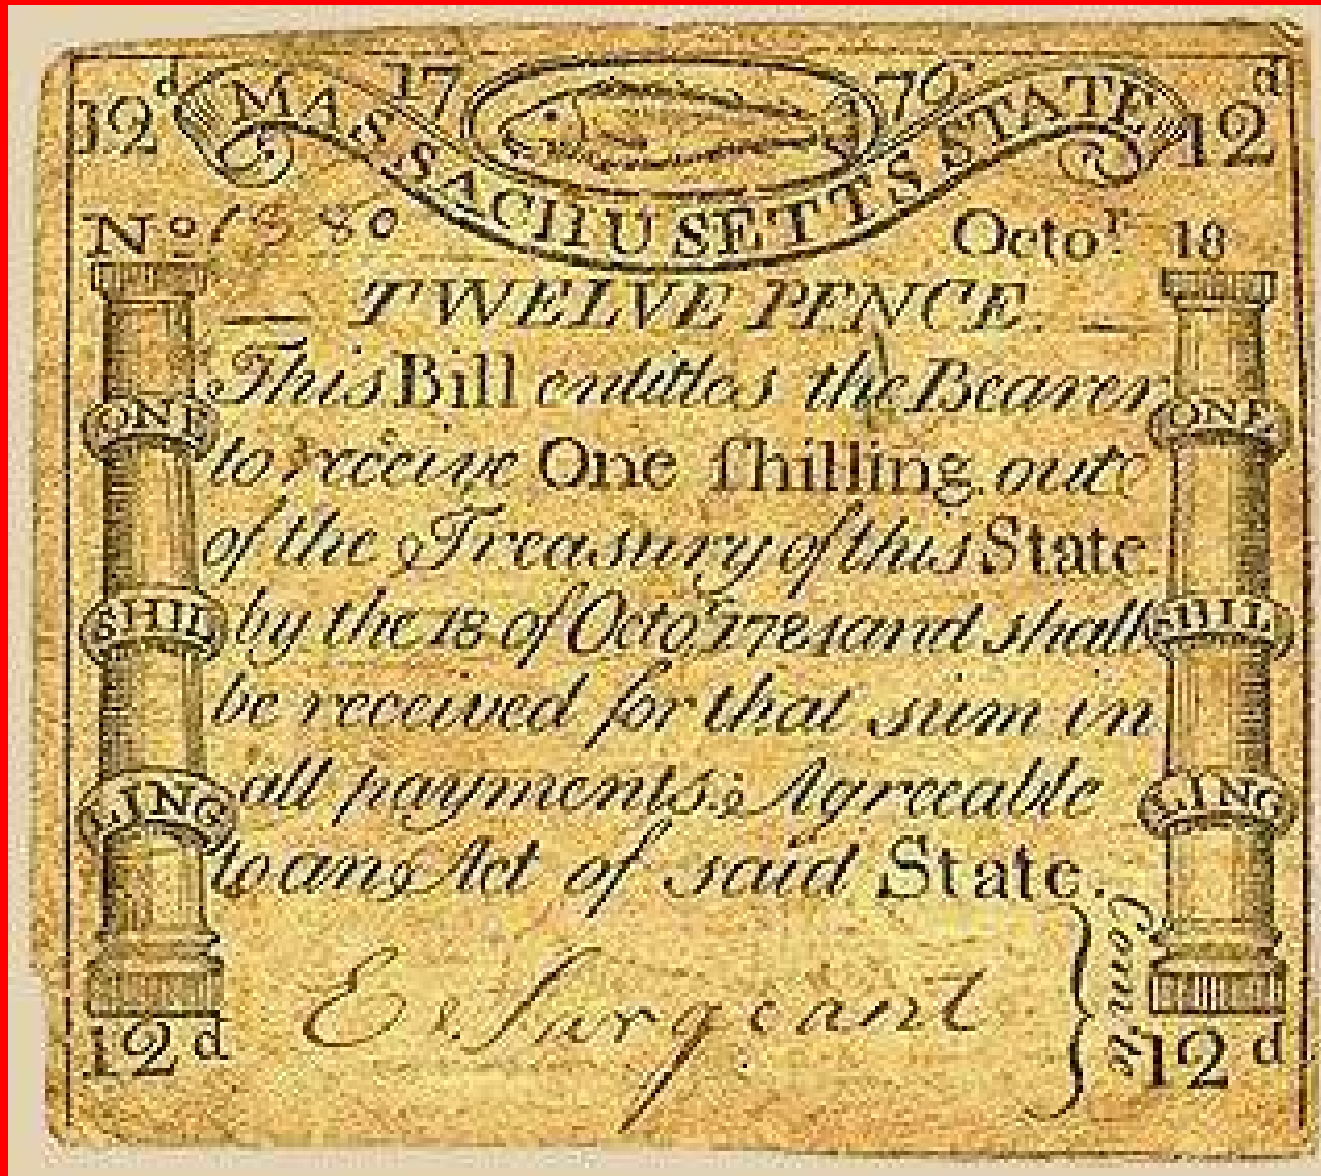 12d 17 76 12d
MASSACHUSETTS STATE
No Octor. 18
TWELVE PENCE.
This Bill entitles the Bearer
to receive One ſhilling out
of the Treasury of this State
by the 18 of Octor. and shall
be received for that sum in
all payments Agreeable
to an Act of said State.
ONE
SHIL
LING
ONE
SHIL
LING
E Sargeant
Comtte
12d 12d